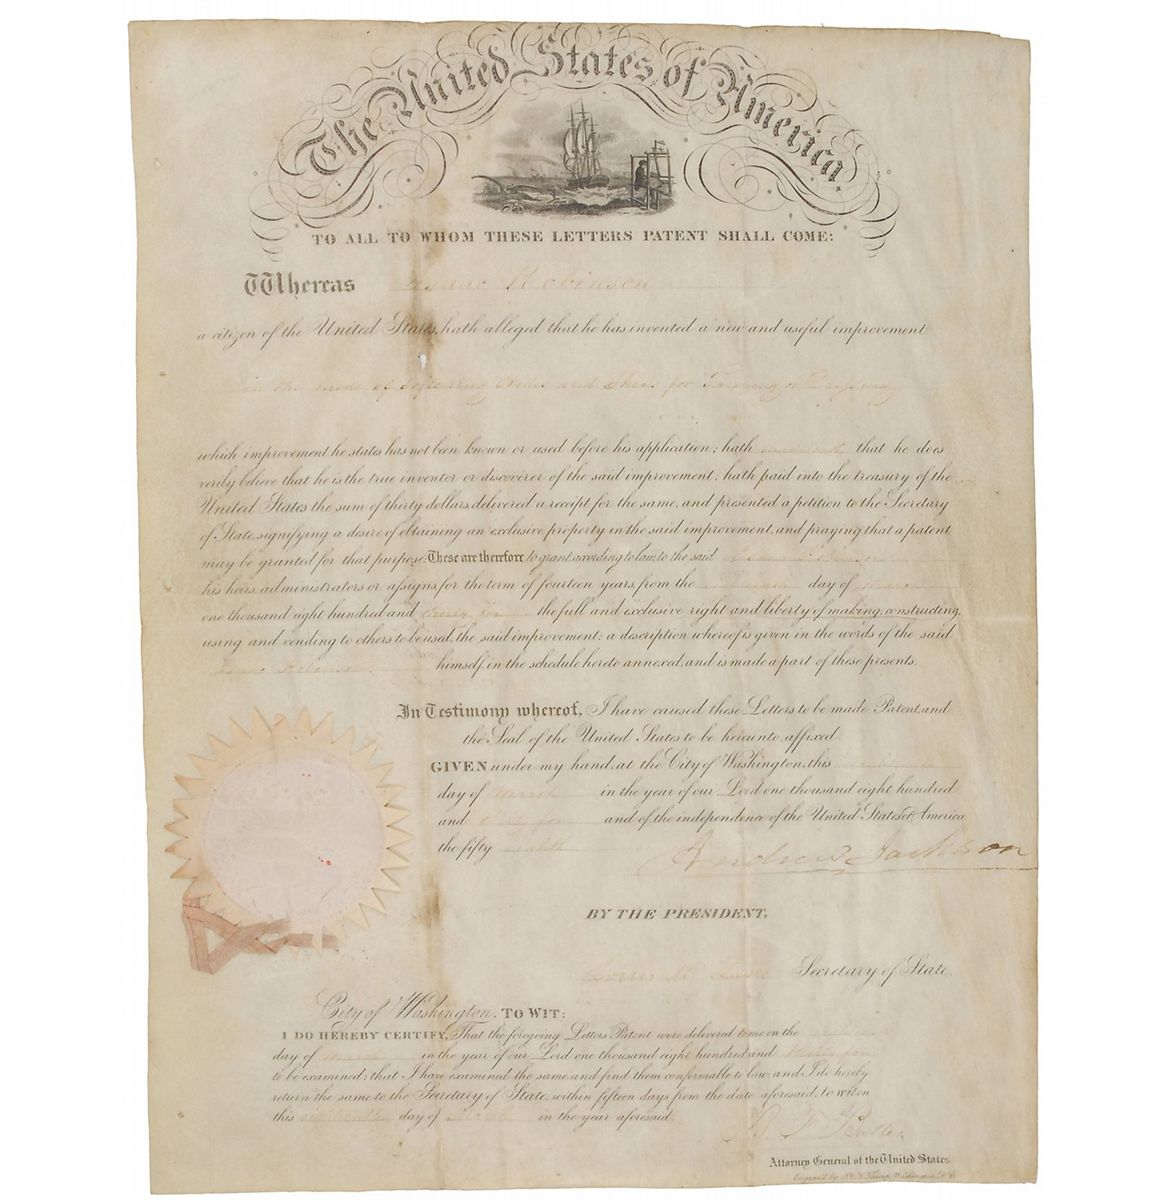 The United States of America
TO ALL TO WHOM THESE LETTERS PATENT SHALL COME:
Whereas Isaac Robinson
a citizen of the United States, hath alleged that he has invented a new and useful improvement
in the mode of Softening Hides and Skins for Tanning
which improvement he states has not been known or used before his application; hath that he does
verily believe that he is the true inventor or discoverer of the said improvement; hath paid into the treasury of the
United States the sum of thirty dollars, delivered a receipt for the same, and presented a petition to the Secretary
of State, signifying a desire of obtaining an exclusive property in the said improvement, and praying that a patent
may be granted for that purpose: These are therefore to grant, according to law, to the said Isaac Robinson
his heirs, administrators or assigns, for the term of fourteen years, from the day of March
one thousand eight hundred and thirty four the full and exclusive right and liberty of making, constructing,
using and vending to others to be used, the said improvement; a description whereof is given in the words of the said
Isaac Robinson himself, in the schedule hereto annexed, and is made a part of these presents.
In Testimony whereof, I have caused these Letters to be made Patent, and
the Seal of the United States to be hereunto affixed.
GIVEN under my hand, at the City of Washington, this
day of March in the year of our Lord one thousand eight hundred
and thirty four and of the independence of the United States of America
the fifty eighth
Andrew Jackson
BY THE PRESIDENT,
Louis McLane Secretary of State.
City of Washington, TO WIT:
I DO HEREBY CERTIFY, That the foregoing Letters Patent were delivered to me on the
day of March in the year of our Lord one thousand eight hundred and thirty four
to be examined; that I have examined the same, and find them conformable to law; and I do hereby
return the same to the Secretary of State, within fifteen days from the date aforesaid, to wit: on
this day of March in the year aforesaid.
B F Butler
Attorney General of the United States.